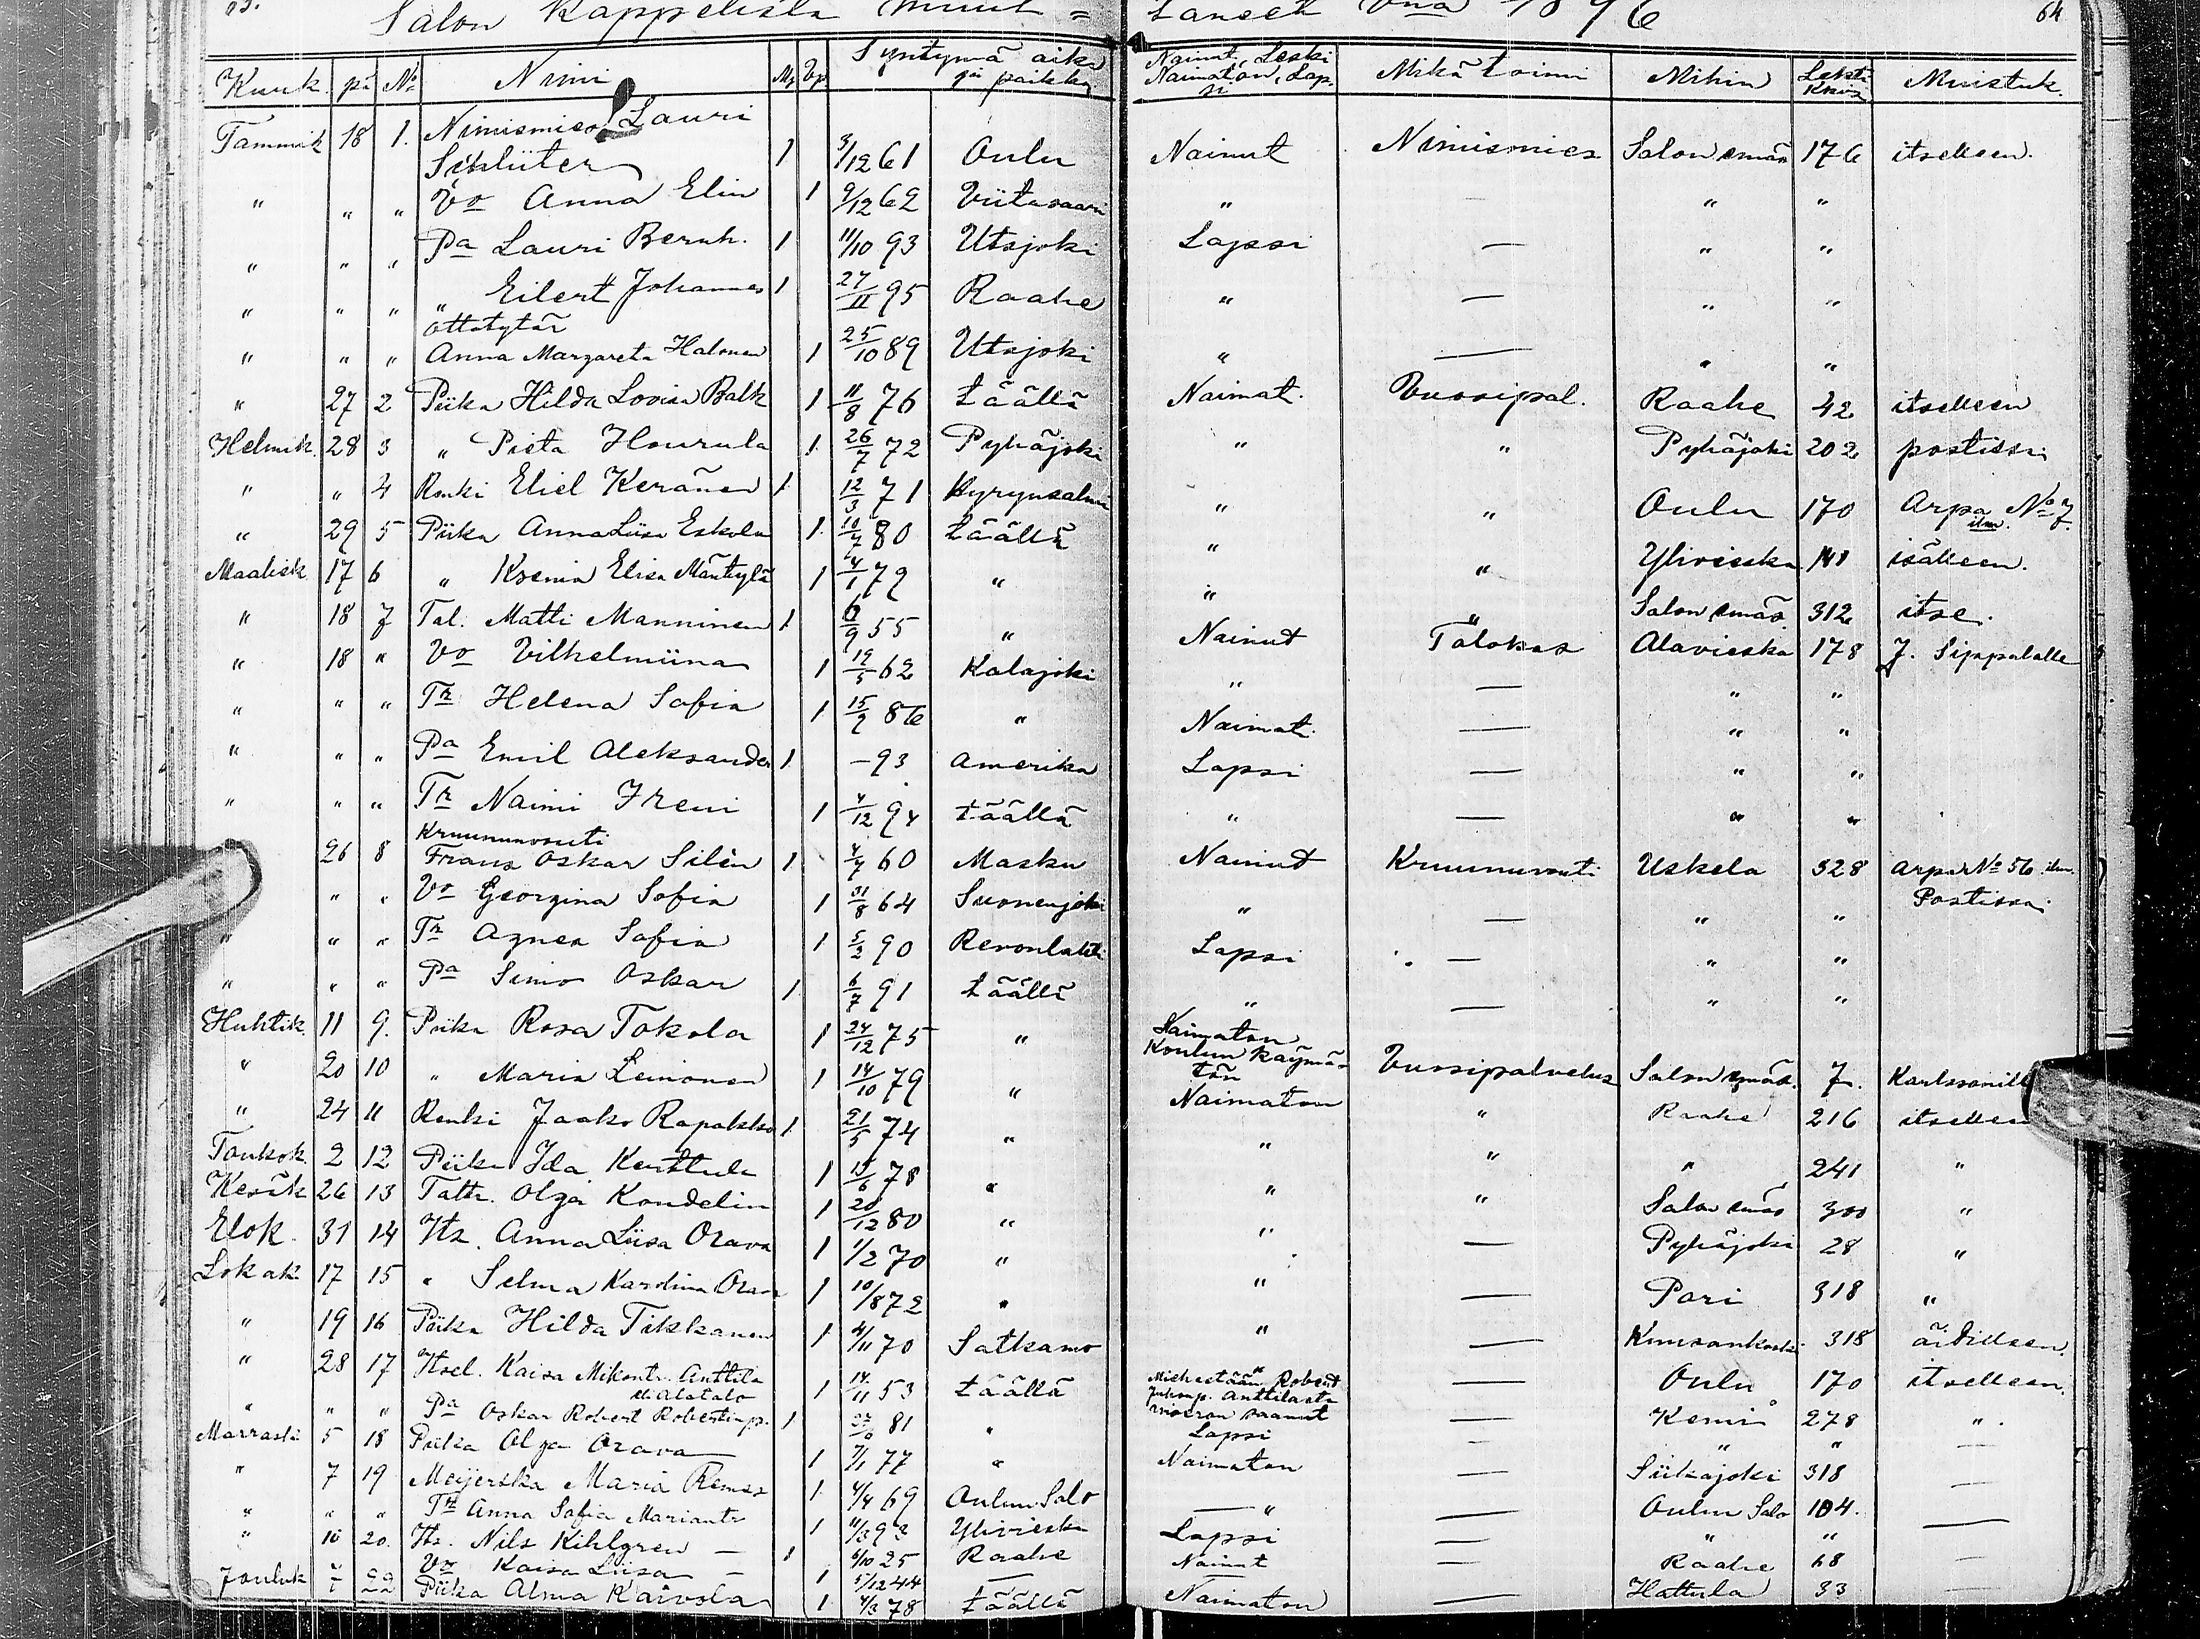 63. Salon Kappelista muut= taneet Vna 1896 64
Kuuk. pä No Nimi Mp Vp Syntymä aika ja paikka Naimat, Leski Naimaton, Lapsi Mikä toimi Mihin Lehti Kkirj Muistuk.
Tammik 18 1. Nimismies Lauri
Schlüter 1 3/12 61 Oulu Nainut Nimismies Salon emäs 176 itselleen.
" " " Vo Anna Elin 1 9/12 62 Viitasaari " — " "
" " " Pa Lauri Bernh. 1 11/10 93 Utsjoki Lapsi — " "
" " " " Eilert Johannes 1 27/11 95 Raahe " — " "
ottotytär
" " " Anna Margareta Halonen 1 25/10 89 Utsjoki " — " "
" 27 2 Piika Hilda Lovisa Balk 1 11/8 76 täällä Naimat. Vuosipal. Raahe 42 itselleen
Helmik. 28 3 " Pieta Hourula 1 26/7 72 Pyhäjoki " " Pyhäjoki 202 postissa
" " 4 Renki Eliel Keränen 1 12/3 71 Hyrynsalmi " " Oulu 170 Arpa No 7 ilm.
" 29 5 Piika Anna Liisa Eskola 1 10/7 80 täällä " " Ylivieska 141 isälleen.
Maalisk. 17 6 " Ksenia Elisa Mäntylä 1 4/1 79 " " " Salon emäs. 312 itse.
" 18 7 Tal. Matti Manninen 1 6/9 55 " Nainut Talokas Alavieska 178 J. Sippalalle
" 18 " Vo Vilhelmiina 1 19/5 62 Kalajoki " — " "
" " " Tr Helena Sofia 1 15/2 86 " Naimat. — " "
" " " Pa Emil Aleksander 1 — 93 Amerika Lapsi — " "
" " " Tr Naimi Ireni 1 4/12 94 täällä " — " "
Kruununvouti
26 8 Frans Oskar Silèn 1 4/7 60 Masku Nainut Kruununvouti Uskela 328 Arpa No 56 ilm. Postissa
" " Vo Georgina Sofia 1 31/8 64 Suonenjoki " — " "
" " " Tr Agnes Sofia 1 5/2 90 Revonlahti Lapsi — " "
" " " Pa Simo Oskar 1 6/7 91 täällä " — " "
Huhtik. 11 9. Piika Rosa Tokola 1 24/12 75 " Naimaton Koulun käymätön Vuosipalvelus Salon emäs. 7. Karlssonill
" 20 10 " Maria Leinonen 1 14/10 79 " Naimaton " Raahe 216 itselleen
" 24 11 Renki Jaako Rapakko 1 21/5 74 " " " " 241 "
Toukok. 2 12 Piika Ida Kenttala 1 15/6 78 " " " Salon emäs 300 "
Kesäk 26 13 Taltr. Olga Kondelin 1 20/12 80 " " — Pyhäjoki 28 "
Elok. 31 14 Its. Anna Liisa Orava 1 1/2 70 " " — Pori 318 "
Lokak 17 15 " Selma Karolina Orava 1 10/8 72 " " — Kuusankoski 318 äidilleen.
" 19 16 Piika Hilda Tikkanen 1 4/11 70 Sotkamo — Oulu 170 itselleen
" 28 17 Itsel. Kaisa Mikontr. Anttila eli Alatalo 1 14/11 53 täällä Miehestään Robert Juhonp. Anttilasta eron saanut — Kemi 278 ".
" " " Pa Oskar Robert Robertinp. 1 81 " Lapsi — " " —
Marrask 5 18 Piika Olga Orava 1 7/1 77 " Naimaton — Siikajoki 318 —
" 7 19 Meijerska Maria Remes 1 4/4 69 Oulun Salo — " — Oulun Salo 104. —
" " " Tr Anna Sofia Mariantr 1 11/3 93 Ylivieska Lapsi — " "
" 10 20. Its. Nils Kihlgren — 1 6/10 25 Raahe Nainut — Raahe 68 —
Vo Kaisa Liisa — 1 5/12 44 —
Jouluk Piika Alma Kaivola 1 4/3 78 täällä Naimaton — Hattula 33 —